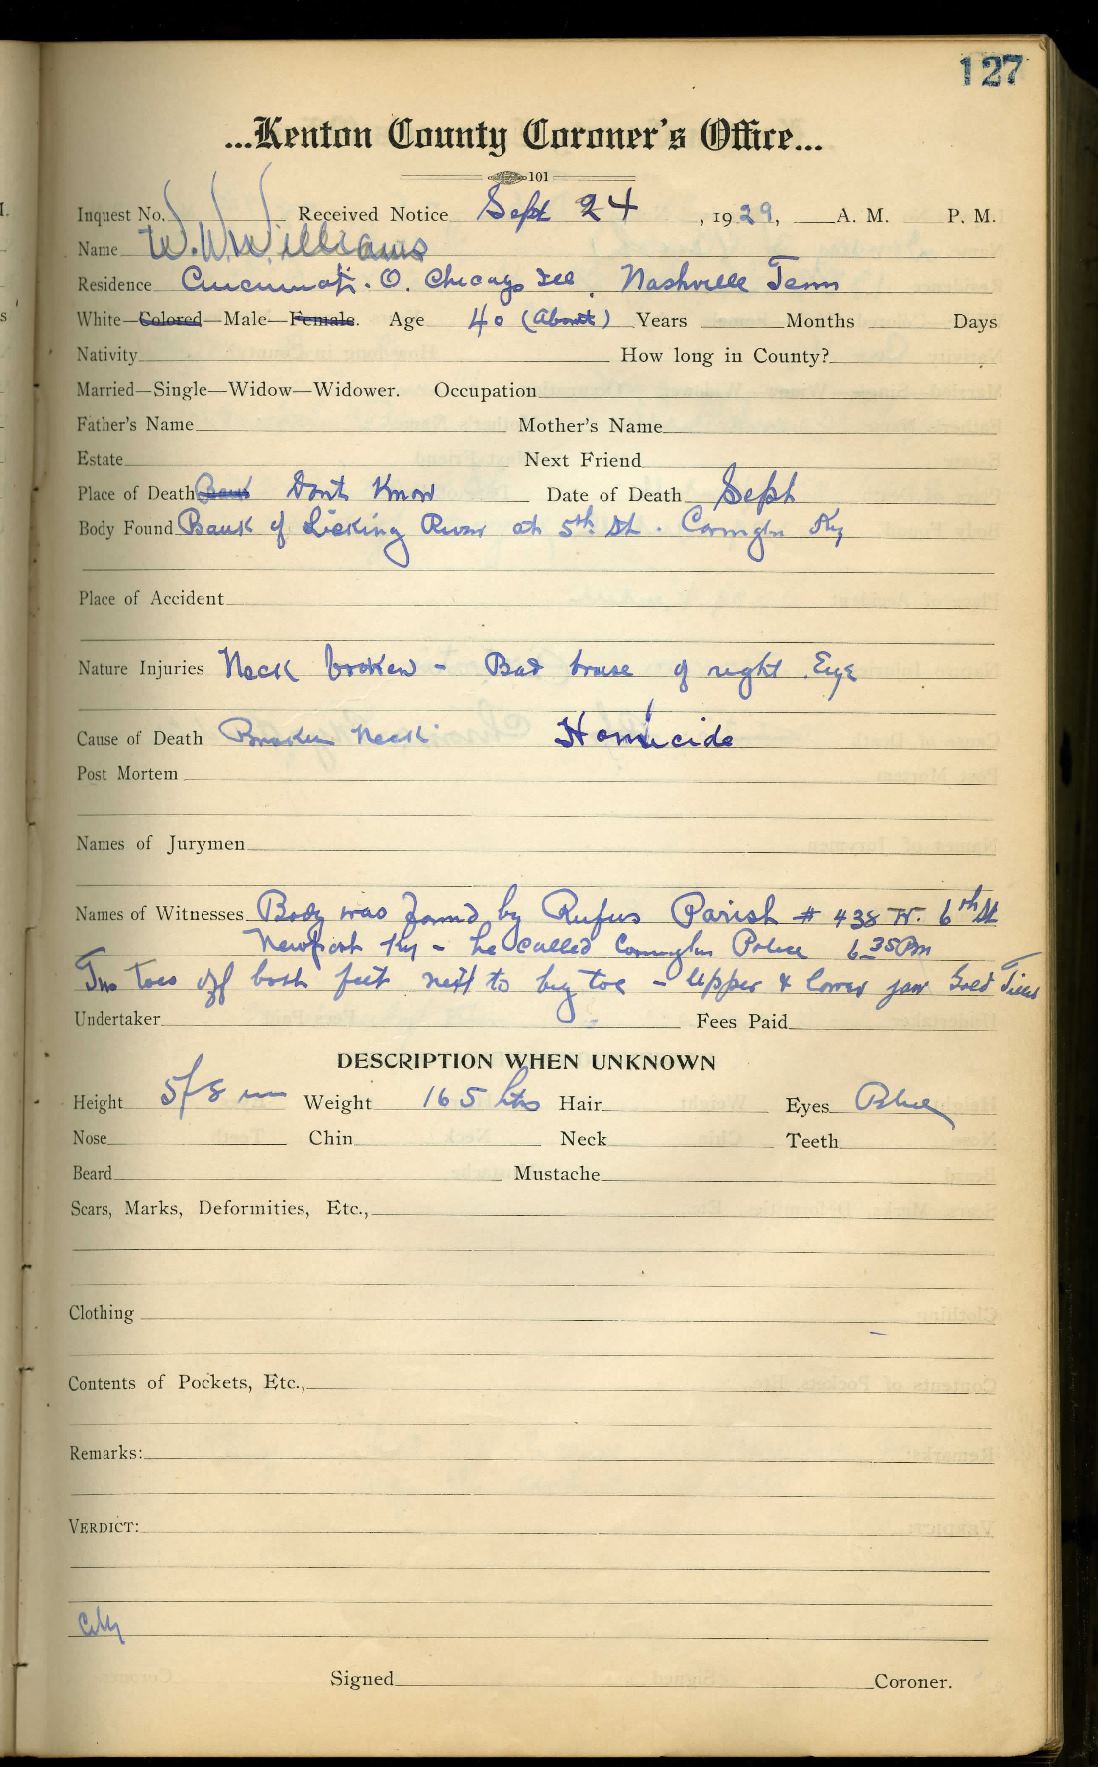 127
...Kenton County Coroner's Office...
101
Inquest No. Received Notice Sept 24, 1929, A. M. P. M.
Name W. W. Williams
Residence Cincinnati. O. Chicago Ill. Nashville Tenn
White—Colored—Male—Female. Age 40 (About) Years Months Days
Nativity How long in County?
Married—Single—Widow—Widower. Occupation
Father's Name Mother's Name
Estate Next Friend
Place of Death Bank Dont Know Date of Death Sept
Body Found Bank of Licking River at 5th St. Covington Ky
Place of Accident
Nature Injuries Neck broken - Bad bruse of right Eye
Cause of Death Broken Neck Homicide
Post Mortem
Names of Jurymen
Names of Witnesses Body was found by Rufus Parish # 438 W. 6th St
Newport Ky - he called Covington Police 6 35 Pm
Two toes off both feet next to big toe - Upper & lower jaw Gold
Undertaker Fees Paid
DESCRIPTION WHEN UNKNOWN
Height 5/8 Weight 165 lbs Hair Eyes Blue
Nose Chin Neck Teeth
Beard Mustache
Scars, Marks, Deformities, Etc.,
Clothing
Contents of Pockets, Etc.,
Remarks:
VERDICT:
City
Signed Coroner.